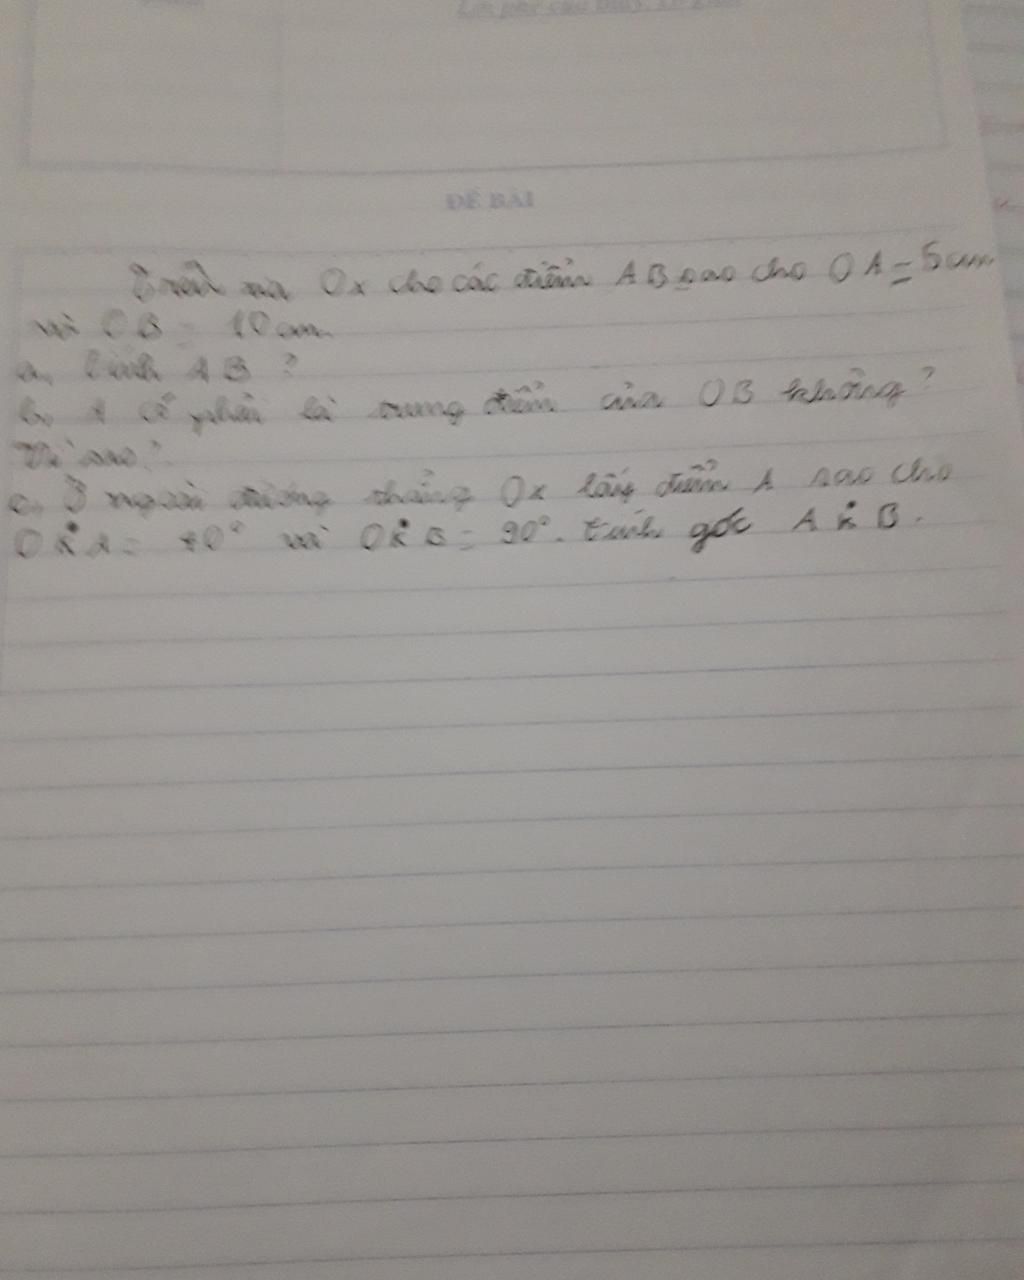 ĐỀ BÀI
Trên tia Ox cho các điểm A B sao cho OA = 5 cm
và OB = 10 cm
a, Tính AB ?
b, A có phải là trung điểm của OB không ?
Vì sao ?
c, Ở ngoài đường thẳng Ox lấy điểm A sao cho
OKA = 40° và OKB = 90°. Tính góc A K B.